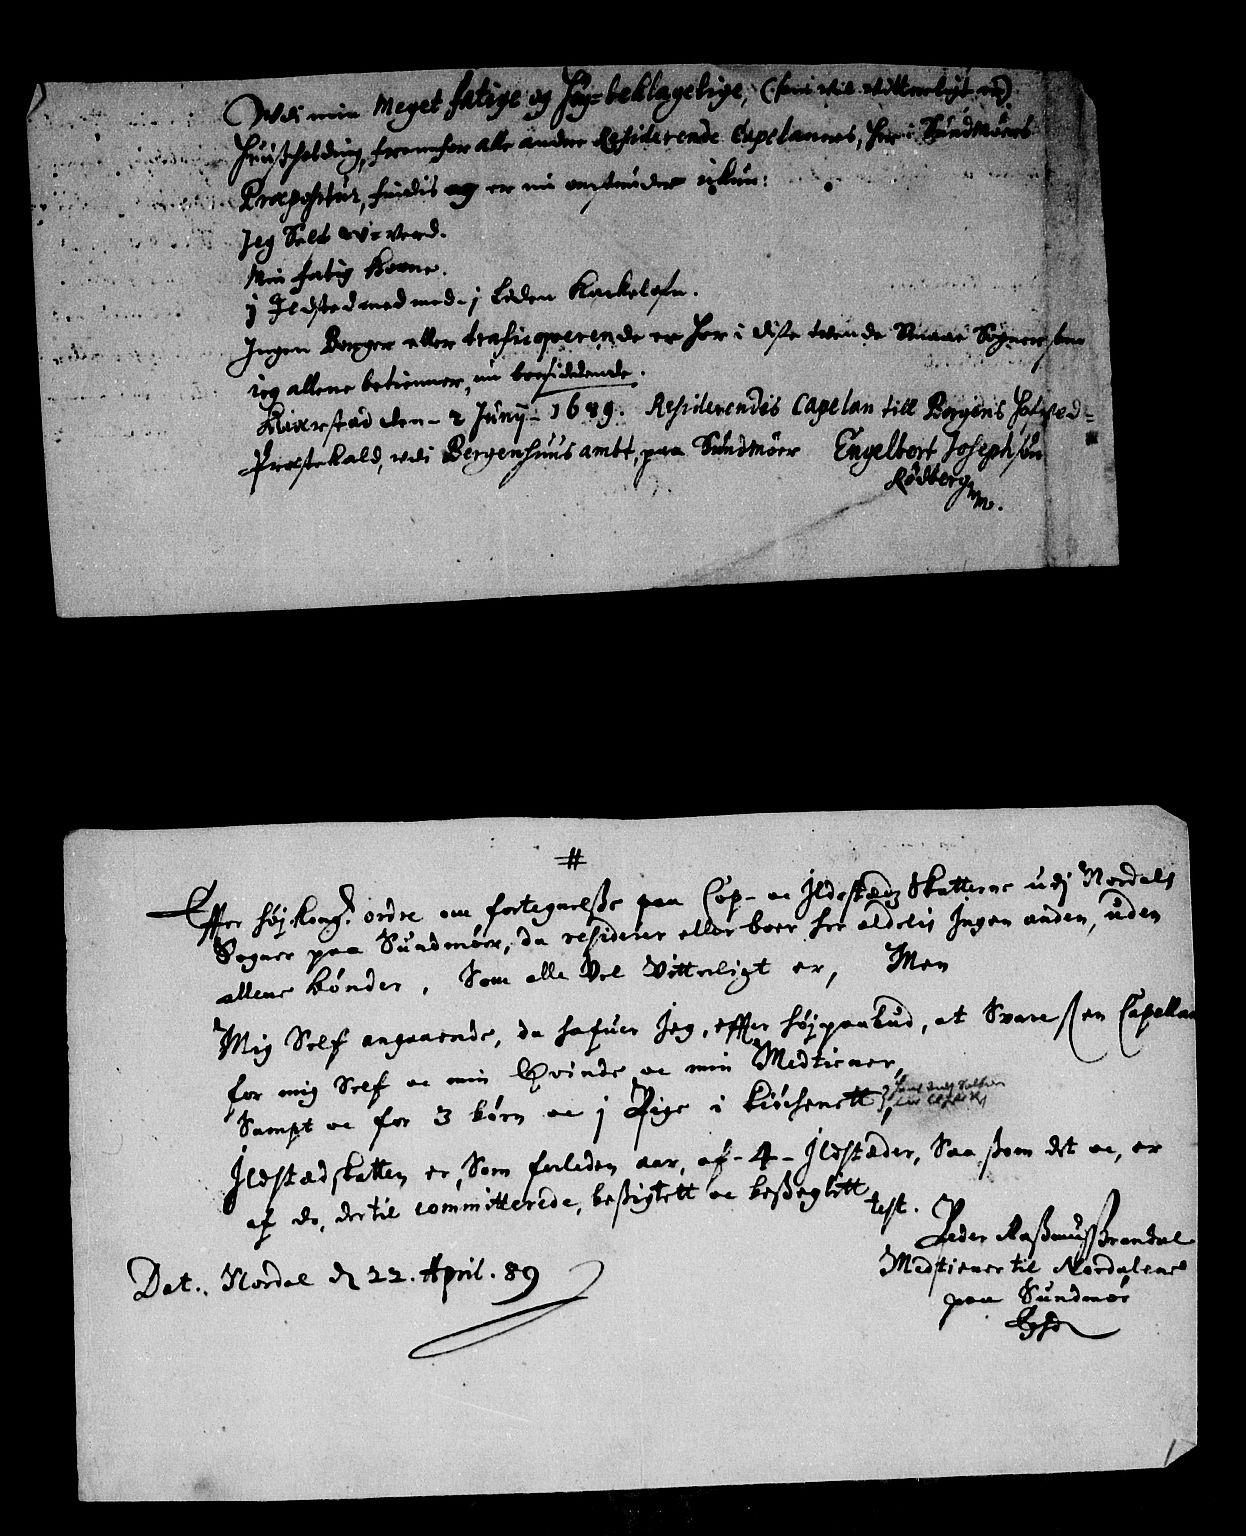 Udi min Meget fatige og Høy-beklagelige, (som vel vitterligt er)
Huußholding, fremfor alle andre Residerende Capelaners, her i Sundmøers
Præpositur, findis og er nu omstunder ickun:
Jeg Selb
Min fatig Kone.
j Ildsted med j liden Kackelofn.
Ingen Borger eller trafiqverende er her i disse tvende Smaae Sogner, som
ieg allene betienner, nu boesiddende.
den 2 Junij 1689. Residerendis Capelan till Borgens Hofved-
Præstekald, udi Bergenhuus ambt, paa Sundmøer Engelbert Josephsøn
Rødberg
#
Effter høj Kongl. ordre om fortegnelsse paa Cop- oc Ildstædz Skatterne udj Nordals
Sogner paa Sundmøer, da residerer eller boer her aldelis Ingen anden, uden
allene bønder, Som alle Vel Vitterligt er, Men
Mig Self angaaende, da hafuer Jeg, effter højpaabud, at Svare som Capellan
for mig Self oc min Qvinde oc min Medtiener,
Sampt oc for 3 børn oc j Pige i kiøchenett,
Ildstædskatten er, Som forleden aar, af - 4 - Ildstæder, Saa som det oc, er
af de, dertil committerede, beßigtett oc beßeglitt
test.
Peder Raßmussøn Brandal
Medtiener til Nordalene
paa Sundmør
Dat. Nordal d 22. April. 89